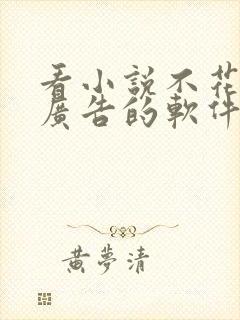 看小説不花
廣告的軟件
黃夢清